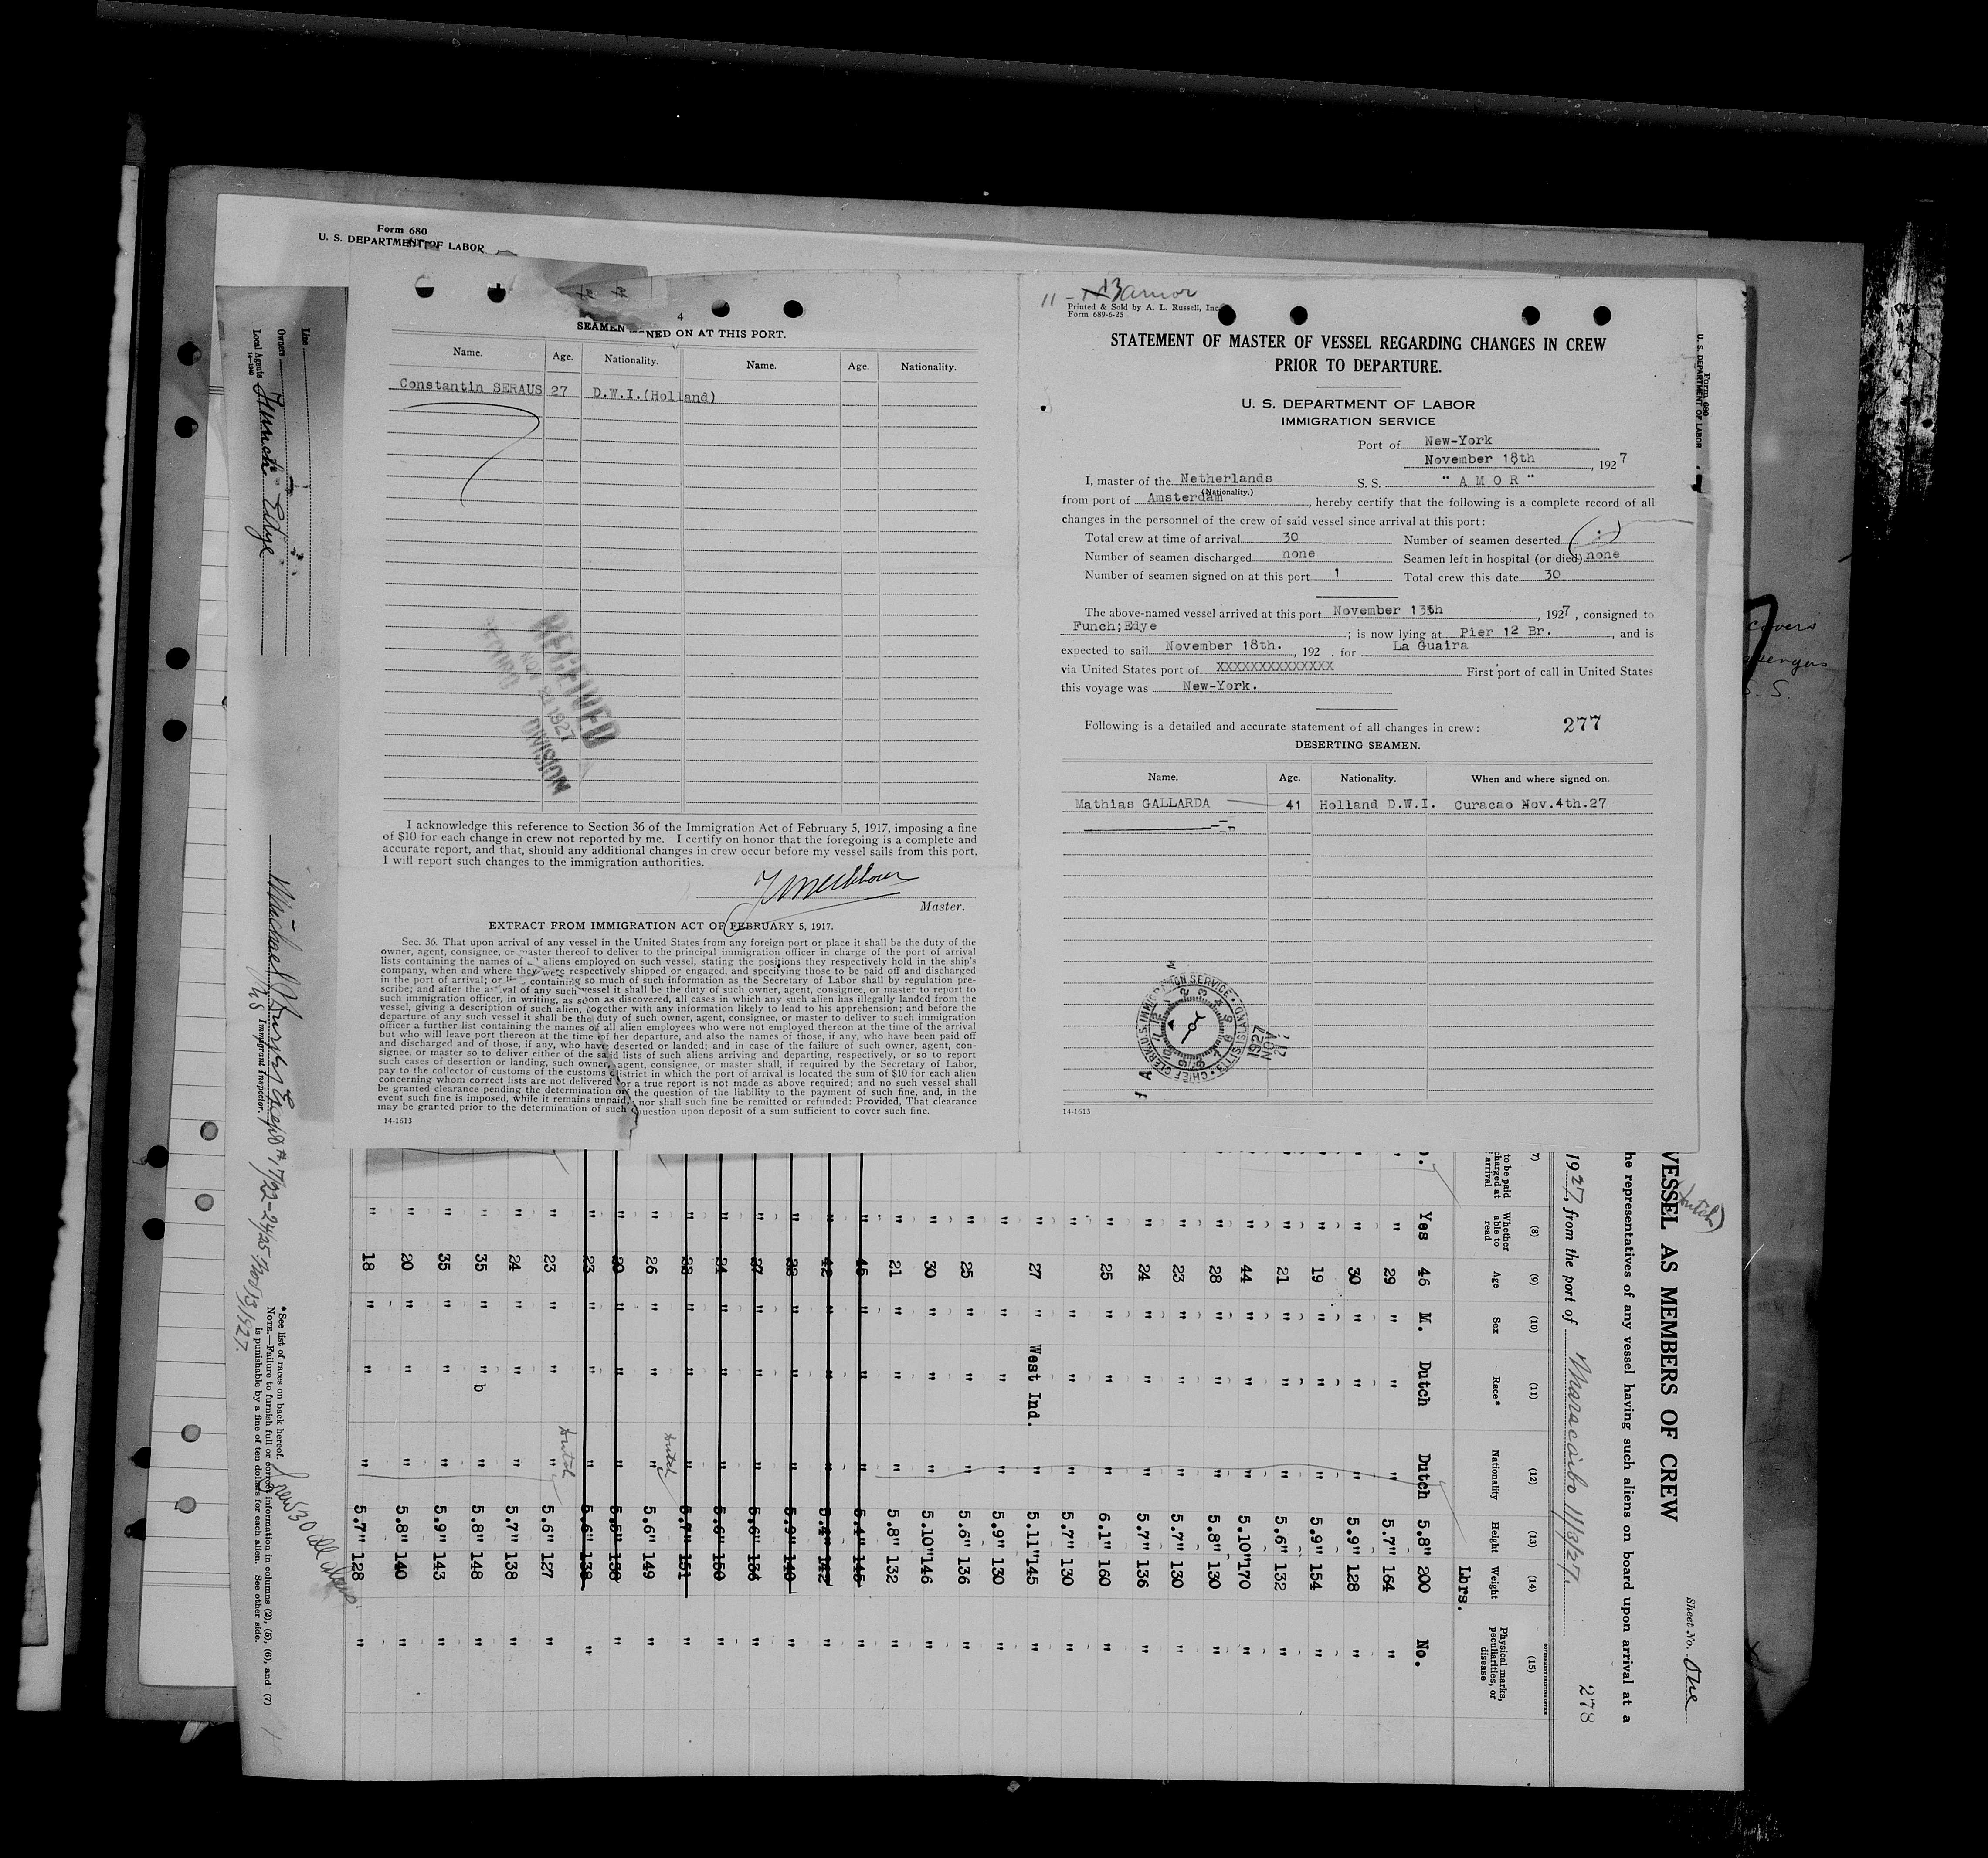 Form 680
U. S. DEPARTMENT OF LABOR
4
SEAMEN NED ON AT THIS PORT.
Name. Age. Nationality. Name. Age. Nationality.
Constantin SERAUS 27 D.W.I.(Holland)
RECEIVED
1927
DIVISION
I acknowledge this reference to Section 36 of the Immigration Act of February 5, 1917, imposing a fine
of $10 for each change in crew not reported by me. I certify on honor that the foregoing is a complete and
accurate report, and that, should any additional changes in crew occur before my vessel sails from this port,
I will report such changes to the immigration authorities.
Master.
EXTRACT FROM IMMIGRATION ACT OF FEBRUARY 5, 1917.
Sec. 36. That upon arrival of any vessel in the United States from any foreign port or place it shall be the duty of the
owner, agent, consignee, or master thereof to deliver to the principal immigration officer in charge of the port of arrival
lists containing the names of all aliens employed on such vessel, stating the positions they respectively hold in the ship's
company, when and where they were respectively shipped or engaged, and specifying those to be paid off and discharged
in the port of arrival; or containing so much of such information as the Secretary of Labor shall by regulation pre-
scribe; and after the arrival of any such vessel it shall be the duty of such owner, agent, consignee, or master to report to
such immigration officer, in writing, as soon as discovered, all cases in which any such alien has illegally landed from the
vessel, giving a description of such alien, together with any information likely to lead to his apprehension; and before the
departure of any such vessel it shall be the duty of such owner, agent, consignee, or master to deliver to such immigration
officer a further list containing the names of all alien employees who were not employed thereon at the time of the arrival
but who will leave port thereon at the time of her departure, and also the names of those, if any, who have been paid off
and discharged and of those, if any, who have deserted or landed; and in case of the failure of such owner, agent, con-
signee, or master so to deliver either of the said lists of such aliens arriving and departing, respectively, or so to report
such cases of desertion or landing, such owner, agent, consignee, or master shall, if required by the Secretary of Labor,
pay to the collector of customs of the customs district in which the port of arrival is located the sum of $10 for each alien
concerning whom correct lists are not delivered or a true report is not made as above required; and no such vessel shall
be granted clearance pending the determination of the question of the liability to the payment of such fine, and, in the
event such fine is imposed, while it remains unpaid, nor shall such fine be remitted or refunded: Provided, That clearance
may be granted prior to the determination of such question upon deposit of a sum sufficient to cover such fine.
14-1613
11 - 13 Amor
Printed & Sold by A. L. Russell, Inc
Form 689-6-25
STATEMENT OF MASTER OF VESSEL REGARDING CHANGES IN CREW
PRIOR TO DEPARTURE.
U. S. DEPARTMENT OF LABOR
IMMIGRATION SERVICE
Port of New-York
November 18th, 1927
I, master of the Netherlands S. S. " A M O R "
(Nationality.)
from port of Amsterdam, hereby certify that the following is a complete record of all
changes in the personnel of the crew of said vessel since arrival at this port:
Total crew at time of arrival 30 Number of seamen deserted
Number of seamen discharged none Seamen left in hospital (or died) none
Number of seamen signed on at this port 1 Total crew this date 30
The above-named vessel arrived at this port November 13th, 1927, consigned to
Funch;Edye ; is now lying at Pier 12 Br., and is
expected to sail November 18th., 192 . for La Guaira
via United States port of XXXXXXXXXXXXXX First port of call in United States
this voyage was New-York.
Following is a detailed and accurate statement of all changes in crew: 277
DESERTING SEAMEN.
Name. Age. Nationality. When and where signed on.
Mathias GALLARDA 41 Holland D.W.I. Curacao Nov.4th.27
CHIEF CLERK U.S. IMMIGRATION SERVICE
1927
NOV
14-1613
Form 680
U. S. DEPARTMENT OF LABOR
Line
Owners
Local Agents Funch Edye
Immigrant Inspector.
(Dutch)
Sheet No. One
VESSEL AS MEMBERS OF CREW
he representatives of any vessel having such aliens on board upon arrival at a
1927, from the port of Maracaibo 11/3/27.
278
(7) to be paid charged at arrival
(8) Whether able to read
(9) Age
(10) Sex
(11) Race*
(12) Nationality
(13) Height
(14) Weight
(15) Physical marks, peculiarities, or disease
Lbrs.
Yes 46 M. Dutch Dutch 5.8" 200 No.
" 29 " " " 5.7" 164 "
" 30 " " " 5.9" 128 "
" 19 " " " 5.9" 154 "
" 21 " " " 5.6" 132 "
" 44 " " " 5.10" 170 "
" 28 " " " 5.8" 130 "
" 23 " " " 5.7" 130 "
" 24 " " " 5.7" 136 "
" 25 " " " 6.1" 160 "
" " " " 5.7" 130 "
" 27 " West Ind. " 5.11" 145 "
" " " " 5.9" 130 "
" 25 " " " 5.6" 136 "
" 30 " " " 5.10" 146 "
" 21 " " " 5.8" 132 "
" 45 " " " 5.4" 145 "
" 42 " " " 5.4" 142 "
" " " " 5.9" 140 "
" 27 " " " 5.6" 136 "
" 24 " " " 5.6" 150 "
" " " " 5.7" 151 "
" 26 " " " Dutch 5.6" 149 "
" " " " "
" 23 " " " 5.6" 138 "
" 23 " " " Dutch 5.6" 127 "
" 24 " " " 5.7" 138 "
" 35 " " " 5.8" 148 "
" 35 " " " 5.9" 143 "
" 20 " " " 5.8" 140 "
" 18 " " " 5.7" 128 "
*See list of races on back hereof.
NOTE.—Failure to furnish full or correct information in columns (2), (5), (6), and (7)
is punishable by a fine of ten dollars for each alien. See other side.